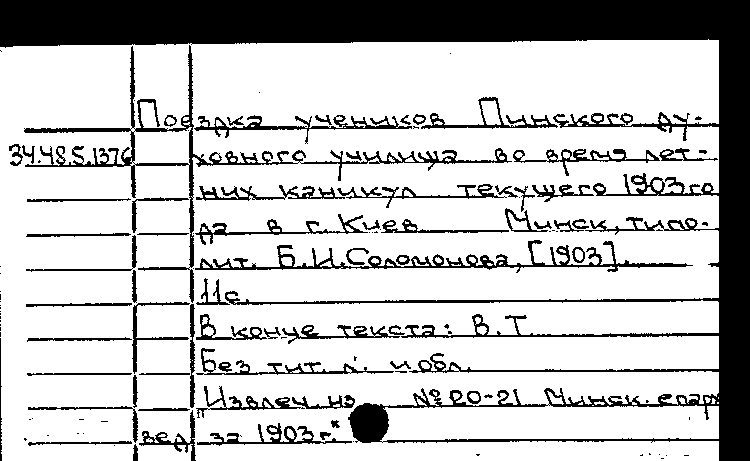 Поездка учеников Пинского ду-
34.48.5.1376 ховного училища во время лет-
них каникул текущего 1903 го
да в г. Киев Минск, типо-
лит. Б.И.Соломонова, [1903].
11с.
В конце текста: В.Т.
Без тит. л. и обл.
Извлеч. из № 20-21 Минск. епарх
вед за 1903 г."